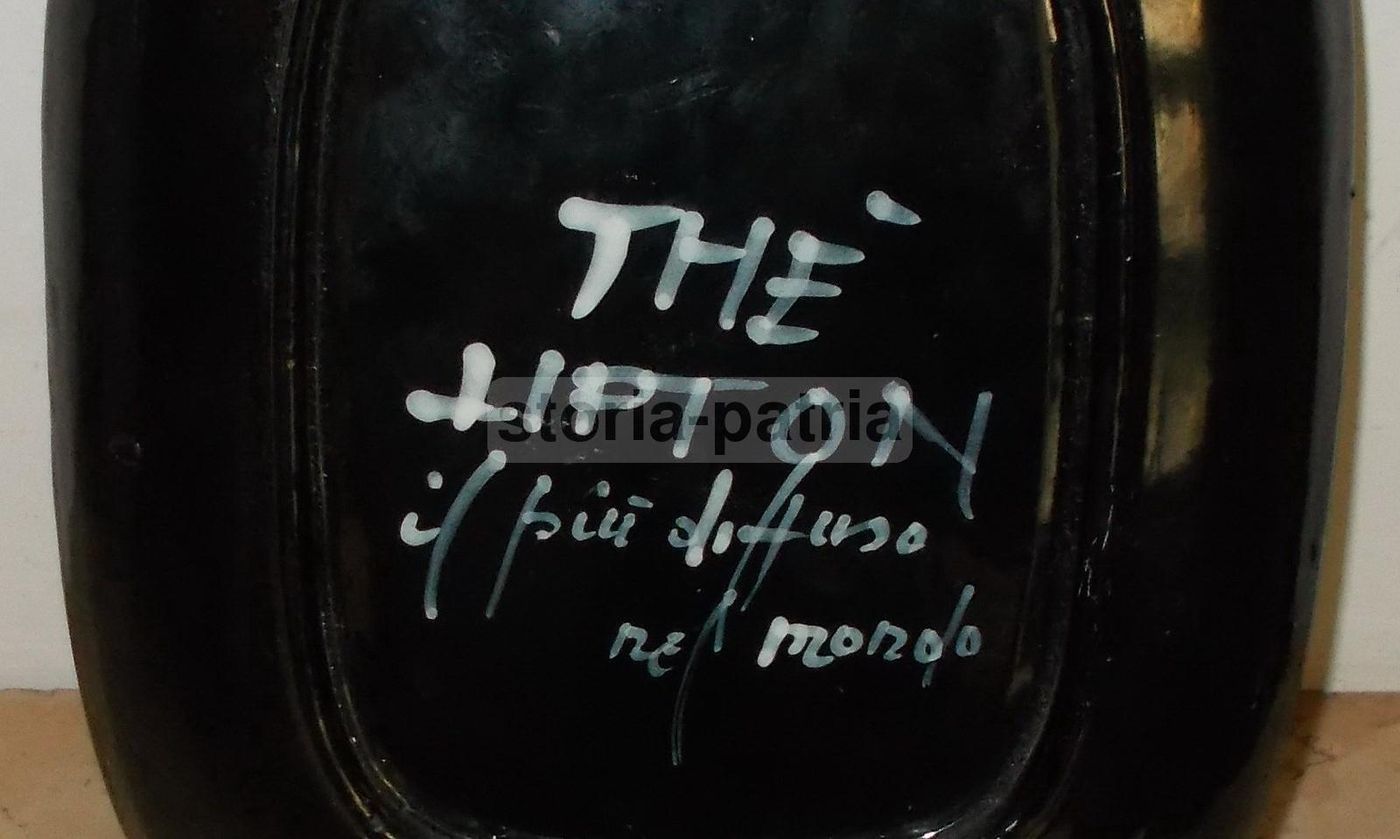 THÈ
LIPTON
storia-patria
il più diffuso
nel mondo